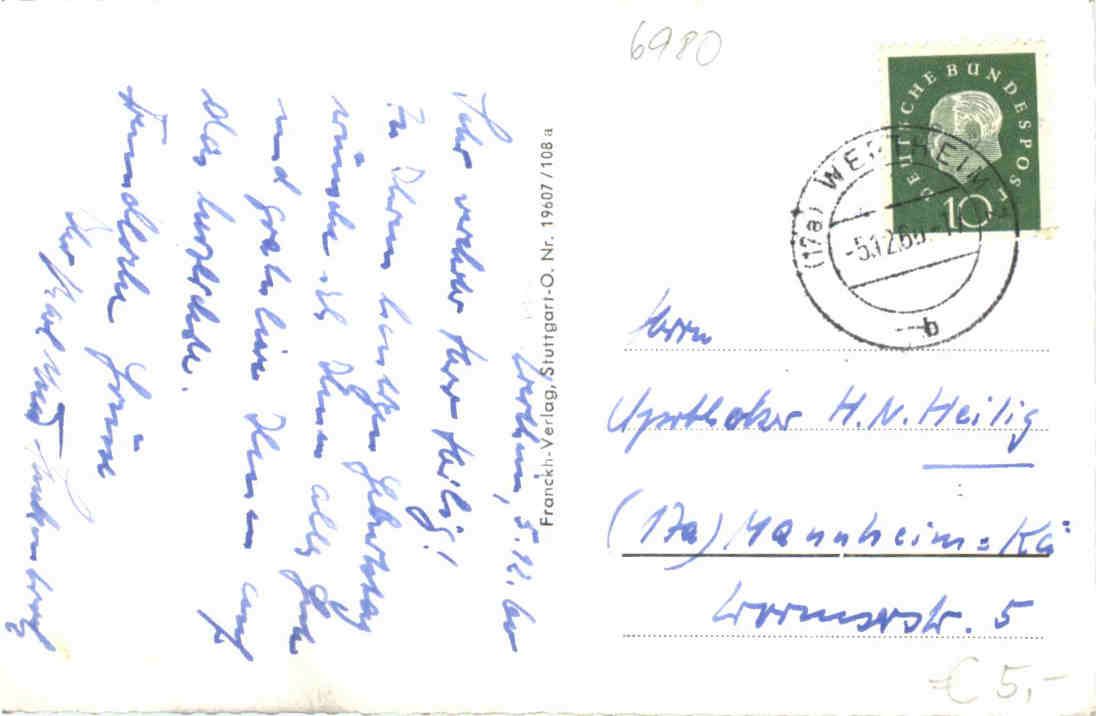 Wertheim, 5.12.60
Sehr verehrter Herr Heilig!
Zu Ihrem heutigen Geburtstag
wünsche ich Ihnen alles Gute
und gratuliere Ihnen auf
das herzlichste.
Freundliche Grüße
Ihr Karl
Franckh-Verlag, Stuttgart-O. Nr. 19607/108 a
6980
DEUTSCHE BUNDESPOST
10
(17a) WERTHEIM
-5.12.60.-
b
Herrn
Apotheker H.N. Heilig
(17a) Mannheim=Kä
Wormserstr. 5
€ 5,-